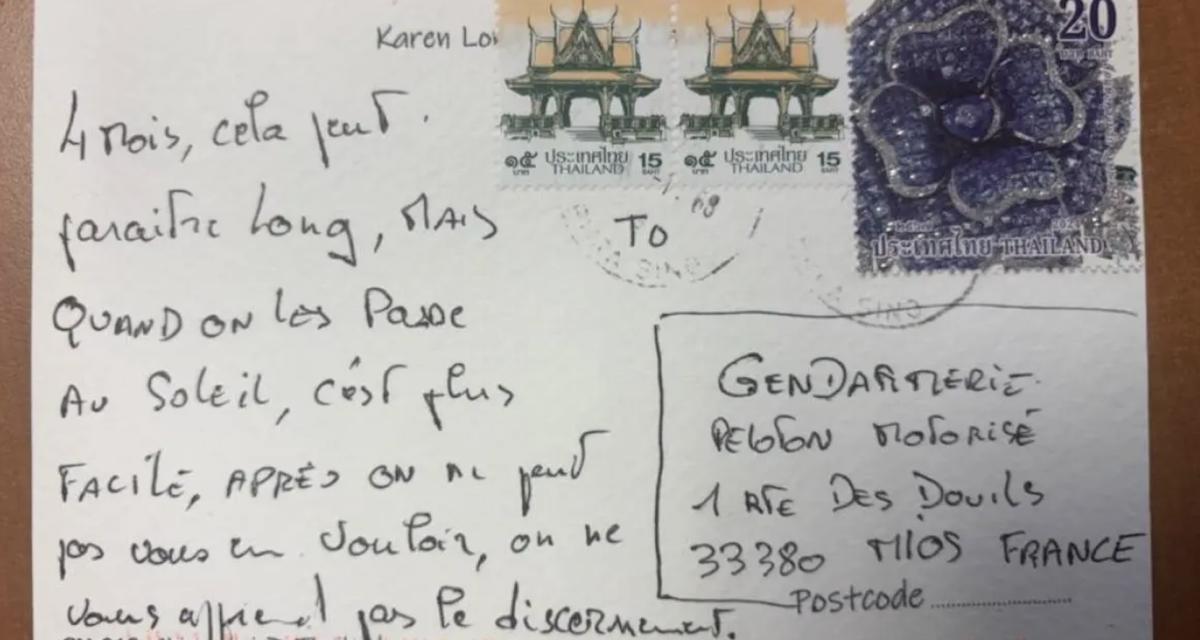 Karen Lo
20
๑๕ ประเทศไทย 15
บาท THAILAND BAHT
๑๕ ประเทศไทย 15
บาท THAILAND BAHT
ประเทศไทย THAILAND
4 Mois, cela peut
paraitre Long, MAIS
QUAND ON LES PASSE
AU SOLEIL, c'est plus
FACILE, APRÈS ON NE peut
pas vous en vouloir, on ne
vous apprend pas le discernement.
TO
GENDARMERIE
PELOTON MOTORISÉ
1 RTE DES DOUILS
33380 MIOS FRANCE
Postcode